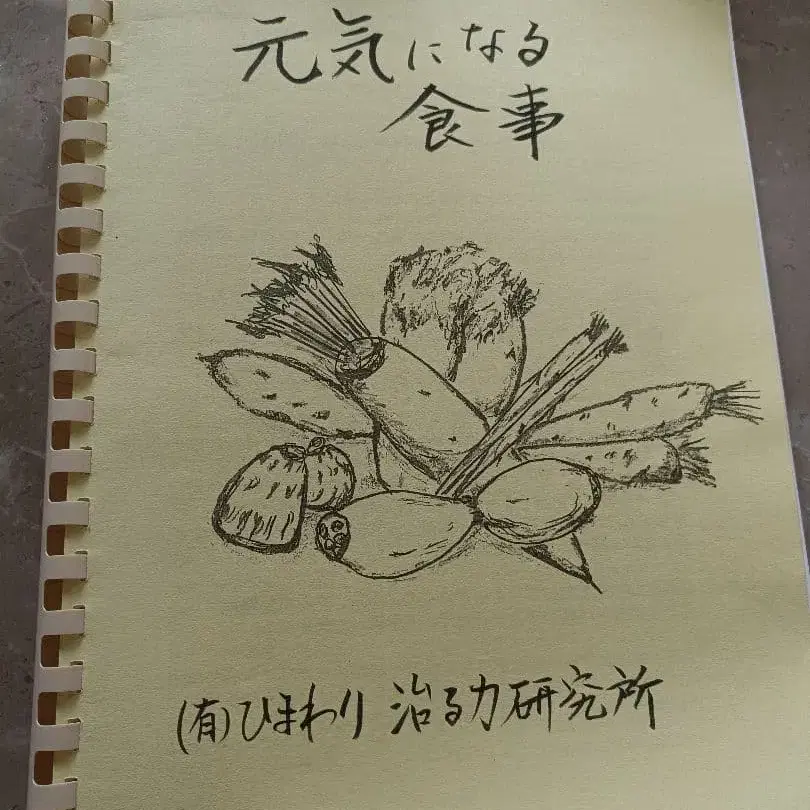 元気になる
食事
(有)ひまわり 治る力研究所